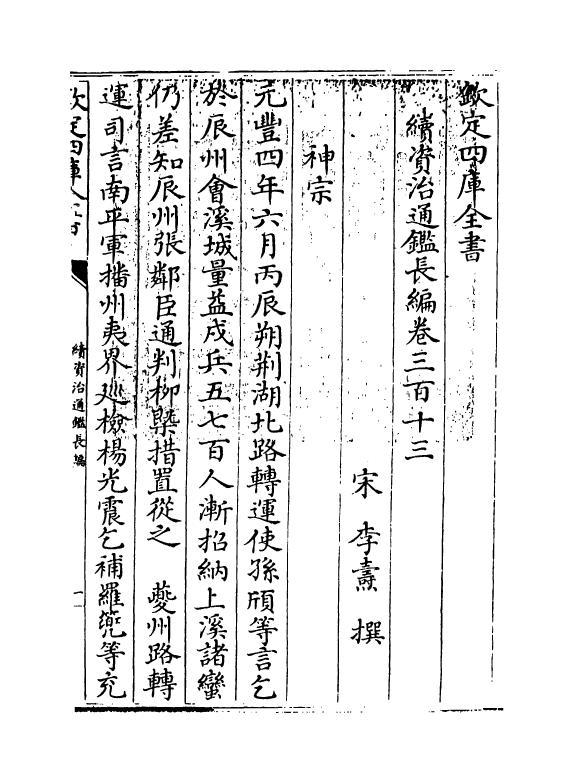 欽定四庫全書
續資治通鑑長編卷三百十三
宋 李燾 撰
神宗
元豐四年六月丙辰朔荆湖北路轉運使孫頎等言乞
於辰州會溪城量益戍兵五七百人漸招納上溪諸蠻
仍差知辰州張鄰臣通判柳槩措置從之 夔州路轉
運司言南平軍播州夷界廵檢楊光震乞補羅𠑽等充
欽定四庫全書
續資治通鑑長編
一